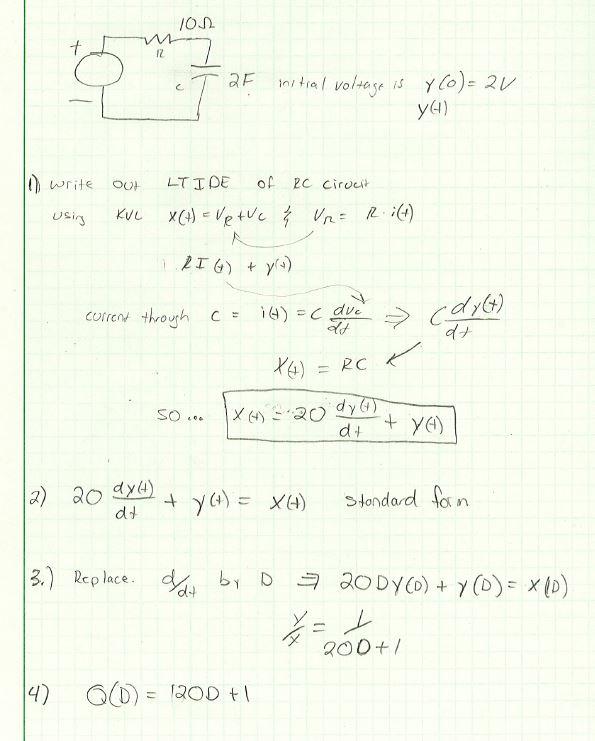 10Ω
+
R
c
2F initial voltage is y(0) = 2V
y(t)
−
1) write out LTIDE of RC circuit
using KVL x(t) = VR + Vc & VR = R · i(t)
RI(t) + y(t)
current through c = i(t) = C dvc/dt ⇒ C dy(t)/dt
X(t) = RC
so ... X(t) = 20 dy(t)/dt + y(t)
2) 20 dy(t)/dt + y(t) = x(t) standard form
3.) Replace. d/dt by D ⇒ 20DY(D) + y(D) = X(D)
Y/X = 1/20D+1
4) Q(D) = 120D + 1